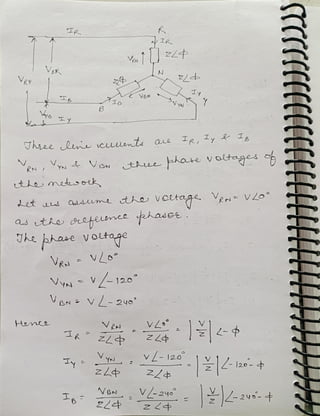 I_R R
I_R
V_RN Z∠φ
N
V_RY V_BR Z∠φ Z∠φ
I_B V_BN I_Y
B I_B V_YN Y
V_YB I_Y
Three line currents are I_R, I_Y & I_B
V_RN, V_YN & V_BN three phase voltages of
the network
Let us assume the voltage V_RN = V∠0°
as the reference phasor.
The phase voltage
V_RN = V∠0°
V_YN = V∠-120°
V_BN = V∠-240°
Hence I_R = V_RN / Z∠φ = V∠0° / Z∠φ = |V/Z| ∠-φ
I_Y = V_YN / Z∠φ = V∠-120° / Z∠φ = |V/Z| ∠-120°-φ
I_B = V_BN / Z∠φ = V∠-240° / Z∠φ = |V/Z| ∠-240-φ